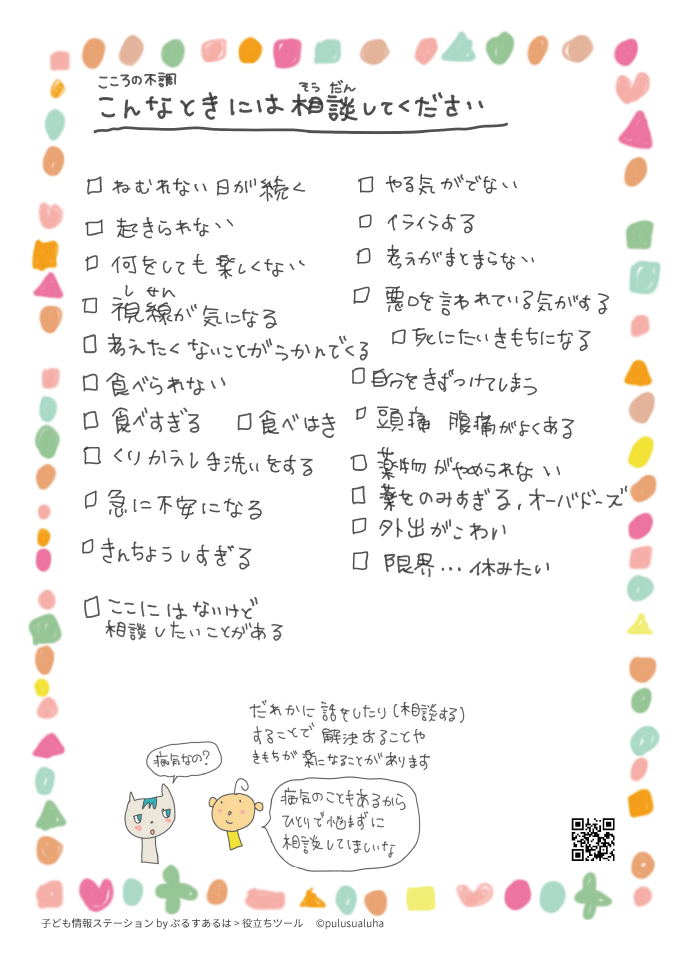 こころの不調
こんなときには相談してください
そう だん
□ ねむれない日が続く
□ 起きられない
□ 何をしても楽しくない
し せん
□ 視線が気になる
□ 考えたくないことがうかんでくる
□ 食べられない
□ 食べすぎる □ 食べはき
□ くりかえし手洗いをする
□ 急に不安になる
□ きんちょうしすぎる
□ ここにはないけど
相談したいことがある
□ やる気がでない
□ イライラする
□ 考えがまとまらない
□ 悪口を言われている気がする
□ 死にたいきもちになる
□ 自分をきずつけてしまう
□ 頭痛 腹痛がよくある
□ 薬物がやめられない
□ 薬をのみすぎる, オーバードーズ
□ 外出がこわい
□ 限界… 休みたい
だれかに話をしたり(相談する)
することで解決することや
きもちが楽になることがあります
病気なの?
病気のこともあるから
ひとりで悩まずに
相談してほしいな
子ども情報ステーション by ぷるすあるは > 役立ちツール ©pulusualuha